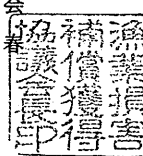 会
春
漁業損害
補償獲得
協議会長印